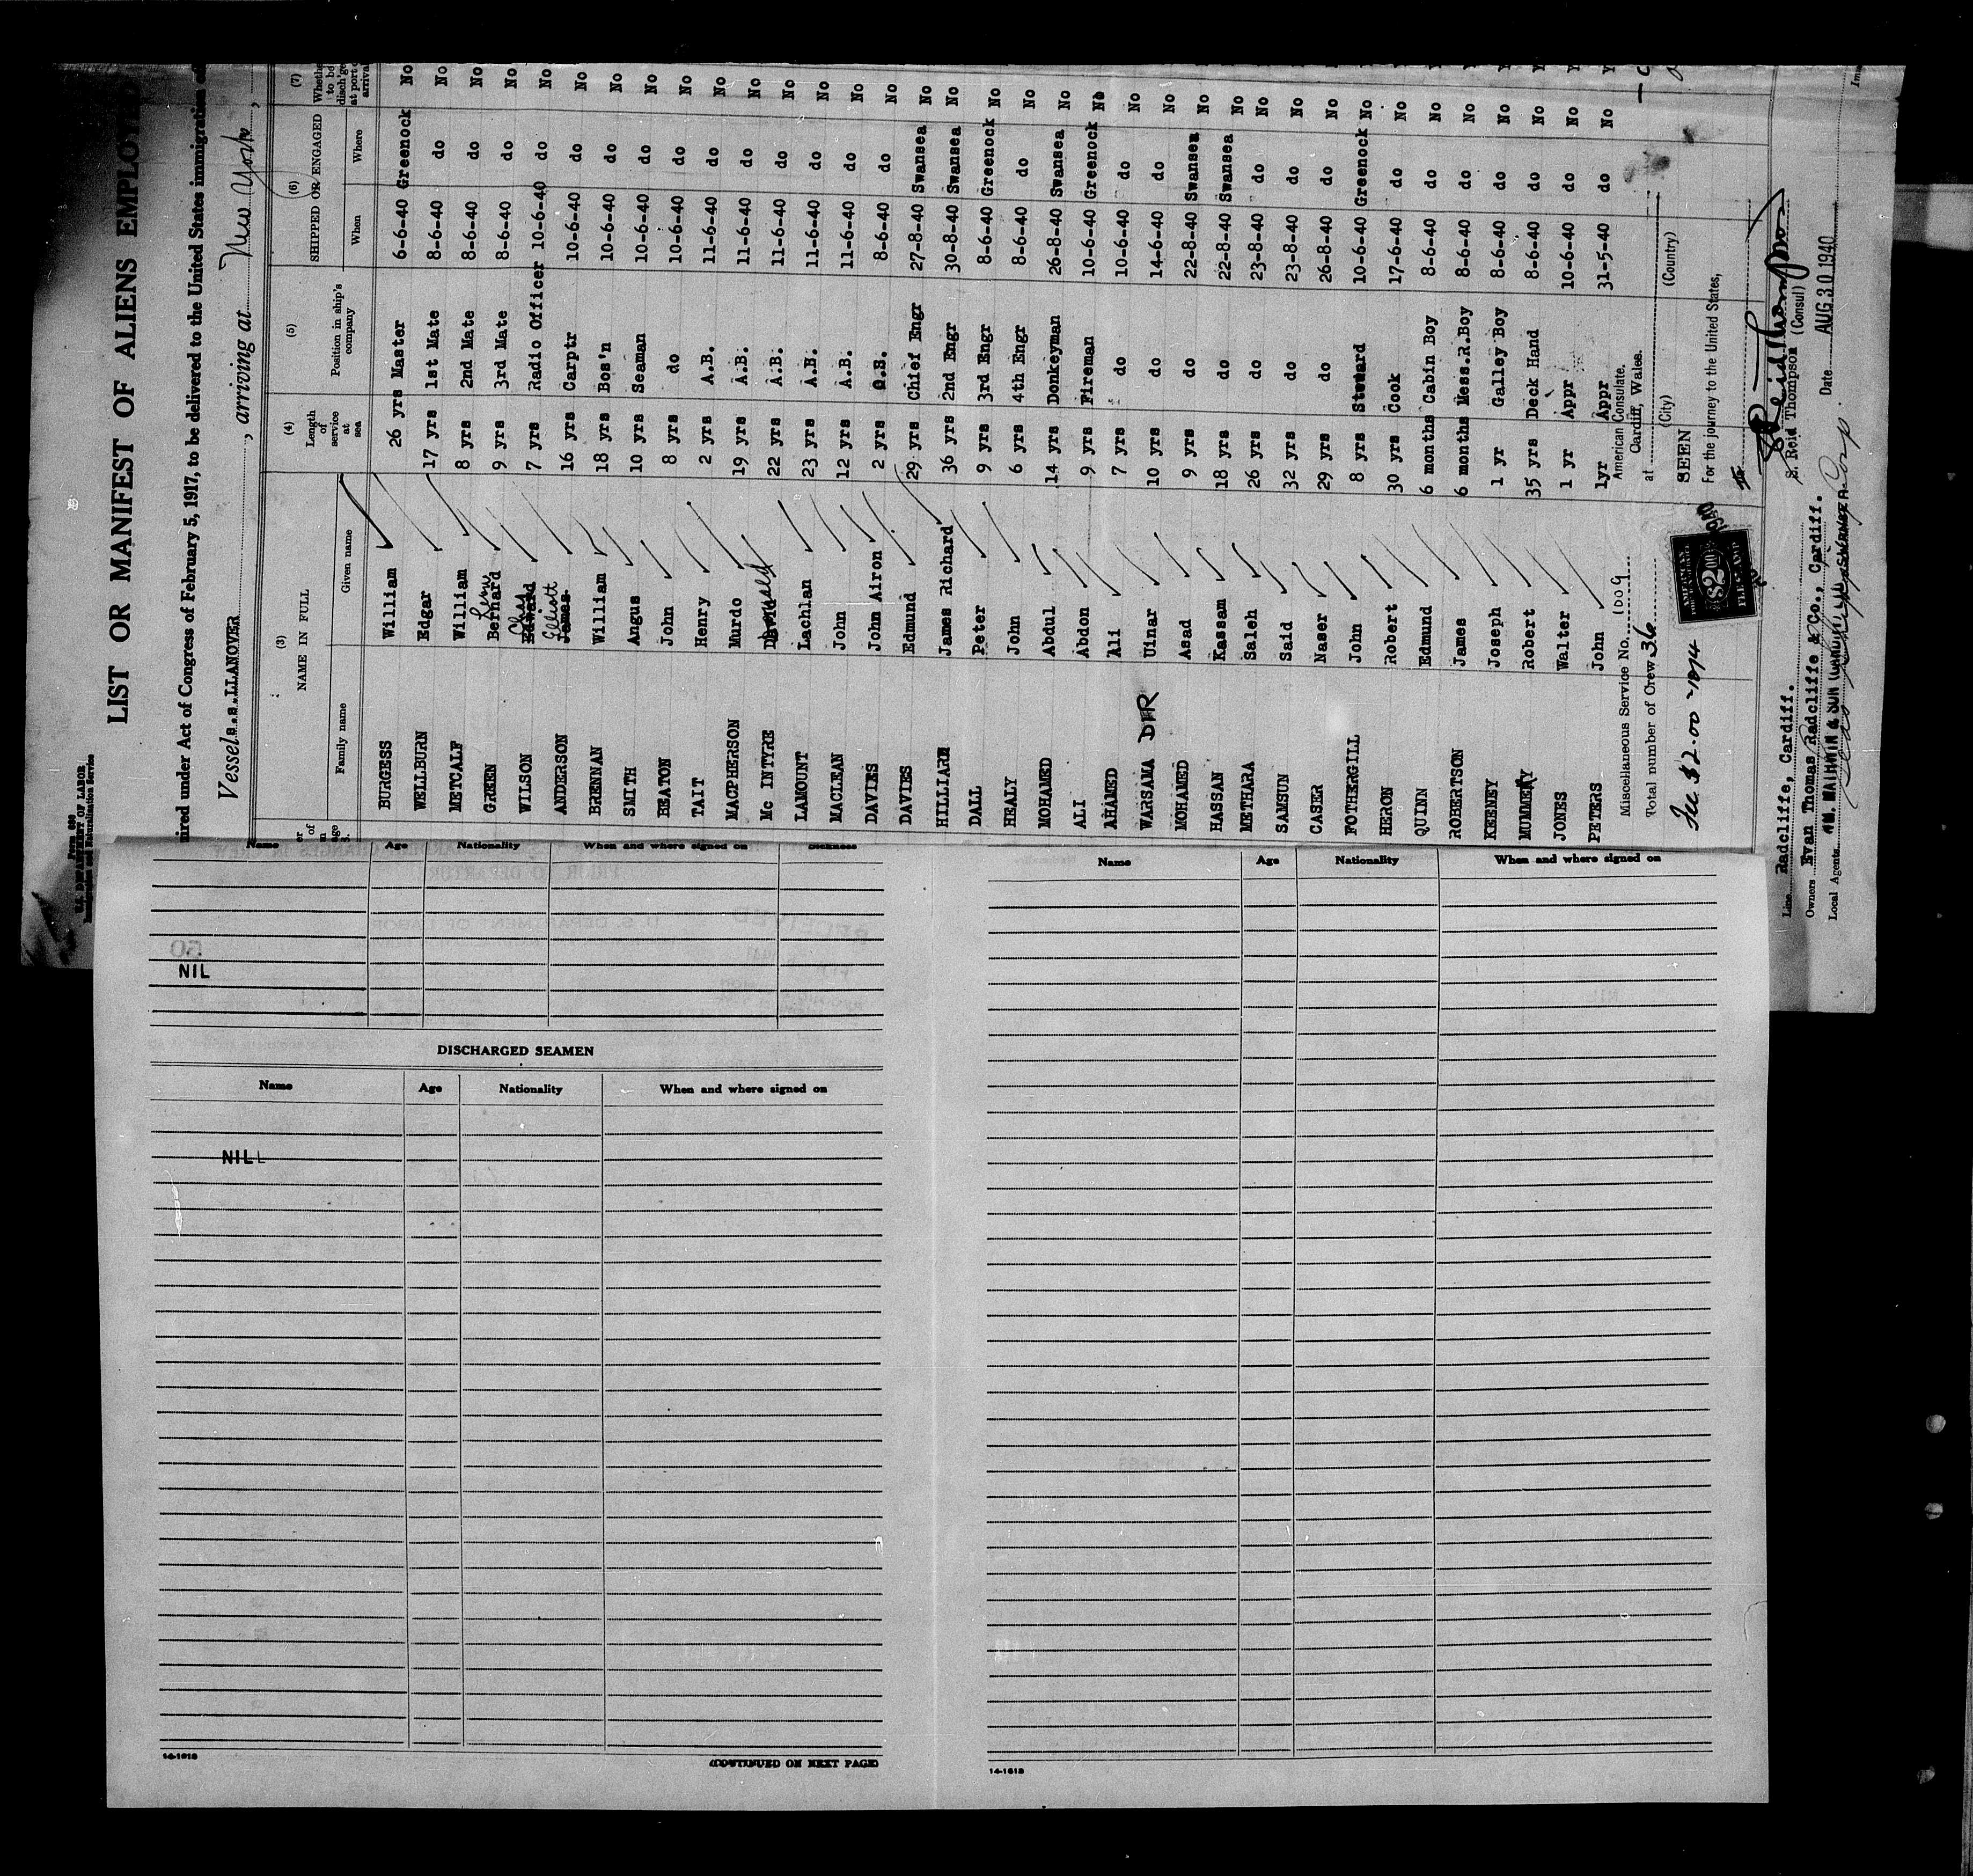 Form 689
U.S. DEPARTMENT OF LABOR
Immigration and Naturalization Service
LIST OR MANIFEST OF ALIENS EMPLOYED
uired under Act of Congress of February 5, 1917, to be delivered to the United States immigration of
Vessel s.s. LLANOVER, arriving at New York,
(3) NAME IN FULL (4) Length of service at sea (5) Position in ship's company (6) SHIPPED OR ENGAGED (7) Whethe to be disch'ge at port o arrival
Family name Given name When Where
BURGESS William 26 yrs Master 6-6-40 Greenock No
WELLBURN Edgar 17 yrs 1st Mate 8-6-40 do No
METCALF William 8 yrs 2nd Mate 8-6-40 do No
GREEN Bernard 9 yrs 3rd Mate 8-6-40 do No
WILSON Edward Chas 7 yrs Radio Officer 10-6-40 do No
ANDERSON James Elliott 16 yrs Carptr 10-6-40 do No
BRENNAN William 18 yrs Bos'n 10-6-40 do No
SMITH Angus 10 yrs Seaman 10-6-40 do No
BEATON John 8 yrs do 10-6-40 do No
TAIT Henry 2 yrs A.B. 11-6-40 do No
MACPHERSON Murdo 19 yrs A.B. 11-6-40 do No
Mc INTYRE 22 yrs A.B. 11-6-40 do No
LAMOUNT Lachlan 23 yrs A.B. 11-6-40 do No
MACLEAN John 12 yrs A.B. 11-6-40 do No
DAVIES John Airon 2 yrs O.S. 8-6-40 do No
DAVIES Edmund 29 yrs Chief Engr 27-8-40 Swansea No
HILLIARD James Richard 36 yrs 2nd Engr 30-8-40 Swansea No
DALL Peter 9 yrs 3rd Engr 8-6-40 Greenock No
HEALY John 6 yrs 4th Engr 8-6-40 do No
MOHAMED Abdul 14 yrs Donkeyman 26-8-40 Swansea No
ALI Abdon 9 yrs Fireman 10-6-40 Greenock No
AHAMED Ali 7 yrs do 10-6-40 do No
WARSAMA DIR Uinar 10 yrs do 14-6-40 do No
MOHAMED Asad 9 yrs do 22-8-40 Swansea No
HASSAN Kassam 18 yrs do 22-8-40 Swansea No
METHARA Saleh 26 yrs do 23-8-40 do No
SAMSUN Said 32 yrs do 23-8-40 do No
CASER Naser 29 yrs do 26-8-40 do No
FOTHERGILL John 8 yrs Steward 10-6-40 Greenock No
HERON Robert 30 yrs Cook 17-6-40 do No
QUINN Edmund 6 months Cabin Boy 8-6-40 do No
ROBERTSON James 6 months Mess.R.Boy 8-6-40 do No
KEENEY Joseph 1 yr Galley Boy 8-6-40 do No
MUMMERY Robert 35 yrs Deck Hand 8-6-40 do No
JONES Walter 1 yr Appr 10-6-40 do No
PETERS John 1yr Appr 31-5-40 do No
Miscellaneous Service No. 1009
Total number of Crew 36
Fee $2.00
AMERICAN
$2.00
FEE STAMP
American Consulate,
at Cardiff, Wales.
(City) (Country)
SEEN
For the journey to the United States,
S. Reid Thompson
S. Reid Thompson (Consul)
Date AUG 30 1940
Line Radcliffe, Cardiff.
Owners Evan Thomas Radcliffe & Co., Cardiff.
Local Agents
Name Age Nationality When and where signed on Sickness
NIL
DISCHARGED SEAMEN
Name Age Nationality When and where signed on
NIL
14-1618
(CONTINUED ON NEXT PAGE)
Name Age Nationality When and where signed on
14-1618